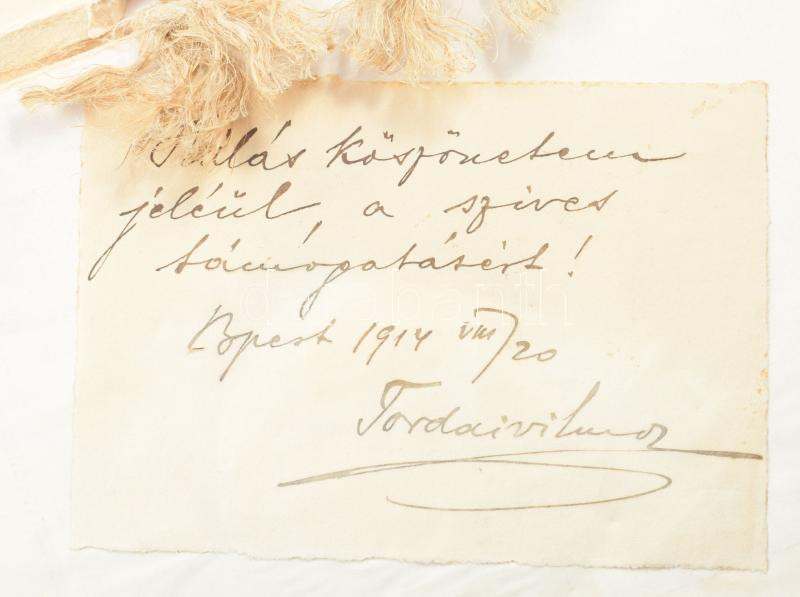 Hálás köszönetem
jeléül, a szives
támogatásért!
Bpest 1914 VIII/20
Tordai Vilmos
darabanth